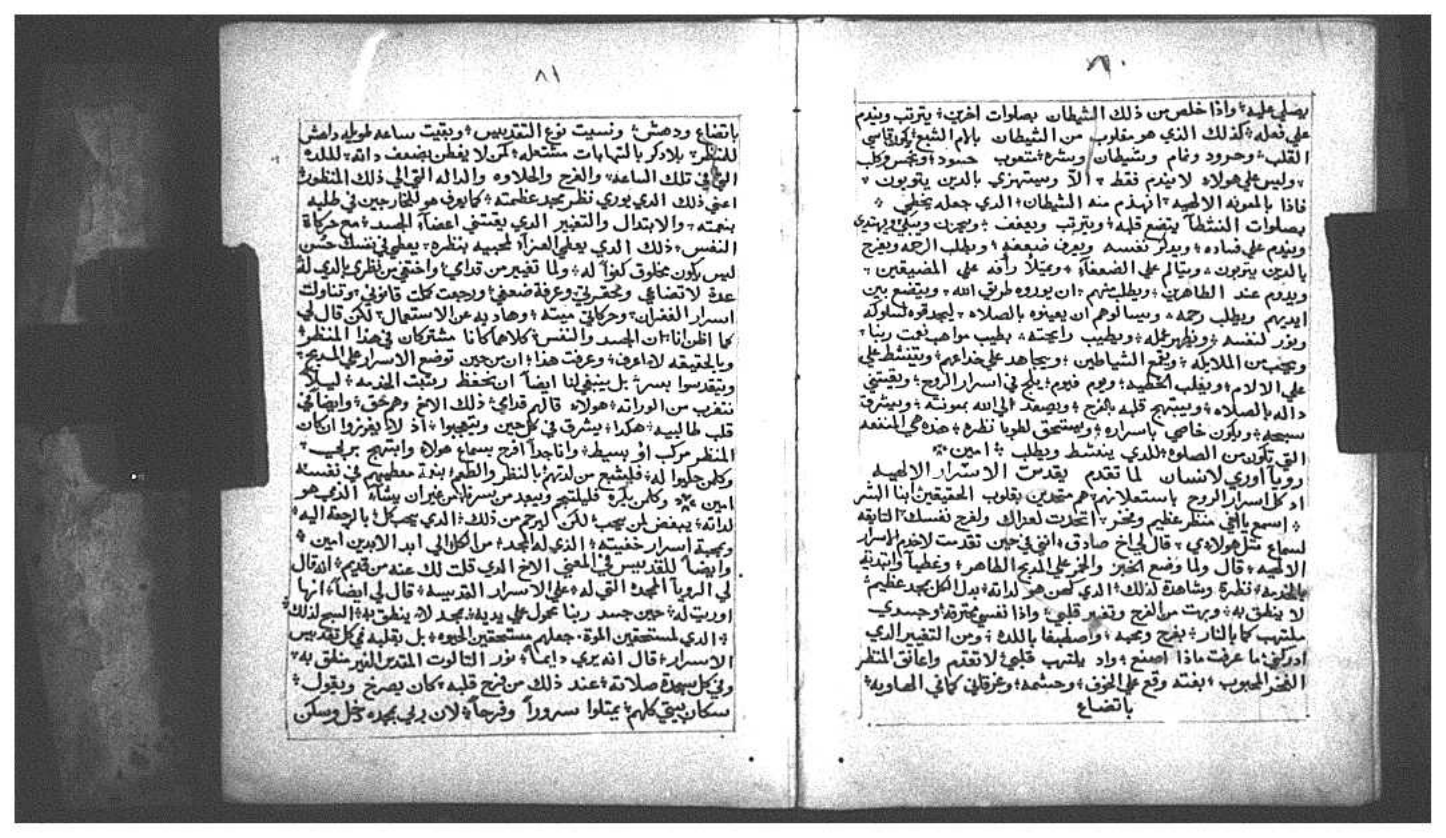 ٨٠
يصلي عليه؛ واذا خلص من ذلك الشيطان بصلوات اخرين؛ يترتب ويندم
علي فعله؛ كذلك الذي هو مغلوب من الشيطان بالام الشبع؛ يكون قاسي
القلب؛ وحرود ونمام وشيطان وشره؛ متعوب حسود؛ ونجس وكلب
وليس علي هولاء لا يندم فقط؛ الا ويستهزي بالدين يتوبون؛
فاذا بالمعونه الالهيه؛ انهذم منه الشيطان؛ الدي جعله يخطي؛
بصلوات النشطا؛ يتضع قلبه؛ ويترتب ويعفف؛ ويحزن ويبكي ويهتدي
ويندم علي فساده؛ ويدكر نفسه ويعرف ضعفه؛ ويطلب الرحمه ويفرح
بالدين يتوبون؛ ويتالم علي الضعفاء؛ ويمتلا رأفه علي المضيقين؛
ويدوم عند الطاهرين؛ ويطلب منهم؛ ان يوروه طريق الله؛ ويتضع بين
ايديهم ويطلب رحمه؛ ويسالوهم ان يعينوه بالصلاه؛ ليجد قوه لسلوكه
ونور لنفسه؛ ويظهر عمله؛ ويطيب رايحته؛ بطيب مواهب نعمت ربنا؛
ويحب من الملايكه؛ ويقمع الشياطين؛ ويجاهد علي خداعهم؛ ويتنشط علي
علي الالام؛ ويغلب الخطيه؛ ويوم فيوم؛ يلج في اسرار الروح؛ ويقتني
داله بالصلاه؛ ويبتهج قلبه بالفرح؛ ويصعد الي الله بمعونته؛ ويشرق
سبحه؛ ويكون خاصي باسراره؛ ويستحق لطوبا نظره؛ هذه هي المنفعه
التي تكون من الصلوه؛ للدي ينشط ويطلب؛ امين
رويا اوري لانسان لما تقدم يقدس الاسرار الالهيه
اد كل اسرار الروح باستعلانهم؛ هم متقدين بقلوب الحقيقين؛ ابنا البشر
اسمع يا اخي منظر عظيم ونخر؛ اتحدت لعداك ولفرح نفسك؛ التايقه
لسماع مثل هولاء دي؛ قال لي اخ صادق؛ انني في حين تقدمت لاخدم الاسرار
الالهيه؛ قال ولما وضع الخبز والخمر علي المدبح الطاهر؛ وغطيا وابتديه
بالخدمه؛ نظرة وشاهدة لذلك؛ الدي كهن هو لداته؛ بدل الكل بمجد عظيم؛
لا ينطق به؛ وبهت من الفرح وتغير قلبي؛ واذا نفسي محترقه؛ وجسدي
ملتهب كما بالنار؛ بفرح ومحبه؛ واصطبغا باللده؛ ومن التغيير الدي
ادركني؛ ما عرفت ماذا اصنع؛ واد يلتهب قلبي؛ لاتقدم واعانق المنظر
الفخر المحبوب؛ بغته وقع علي الخوف؛ وحشمه؛ وغرقاني كما في الهاويه؛
باتضاع
٨١
باتضاع ودهش؛ ونسيت نوع التقديس؛ وبقيت ساعه طويله داهش
للنظر؛ بلا دكر بالتهابات مشتعله؛ لكن لا يفطن بضعف داته؛ لللده
التي في تلك الساعه؛ والفرح والحلاوه والداله التي الي ذلك المنظور؛
اعني ذلك الدي يوري نظر مجد عظمته؛ كما يعرف هو للخارجين في طلبه
بنعمته؛ والابتدال والتغيير الدي يقتني اعضا الجسد؛ مع حركاة
النفس؛ ذلك الدي يعطي العزا؛ لمحبيه بنظره؛ يعطي في نفسك حسن
ليس يكون مخلوق كفوا له؛ ولما تغيير من قدامي؛ واختفي من نظري؛ الدي له
عدة لاتضاعي ومحقرتي وعرفة ضعفي؛ ورجعت كملت قانوني؛ وتناولت
اسرار الغفران؛ وحركاتي ميته؛ وهاديه عن الاستعمال؛ لكن قال لي
كما اظن انا؛ ان الجسد والنفس؛ كلاهما كانا مشتركان في هدا المنظر؛
وبالحقيقه لا اعرف؛ وعرفت هدا؛ ان من حين توضع الاسرار علي المدبح؛
ويتقدسوا بسر؛ بل ينبغي لنا ايضا ان نحفظ رتبت الخدمه؛ ليلا
نتغرب من الوراته؛ هولاء قالهم قدامي؛ ذلك الاخ وهم حق؛ وايضا في
قلب طالبيه؛ هكدا؛ يشرق في كل حين ويتعجبوا؛ اذ لا يفرزوا ان كان
المنظر مركب او بسيط؛ وانا جدا افرح بسماع هولاء وابتهج بربي؛
وكلمن حليوا له؛ فليشبع من لدتهم؛ بالنظر والطعم؛ بنعمة معطيهم في نفسه
امين وكلمن يكره فليلتجم ويبعد من سرنا؛ من غير ان يشاء الذي هو
لداته؛ يبغض لمن يحب؛ لكن ليرحم من ذلك؛ الدي يحب كل؛ بالرجعه اليه
وبمحبة اسرار خفيته؛ الذي له المجد؛ من الكل الي ابد الابدين امين؛
وايضا للقديس في المعني الاخ الدي قلت لك عنه من قديم؛ انه قال
لي الرويا المجده التي له؛ علي الاسرار القديسه؛ قال لي ايضا؛ انها
اوريت له؛ حين جسد ربنا محمول علي يديه؛ بمجد لا ينطق به؛ السبح لذلك
الدي لمستحقين الموة؛ جعلهم مستحقين الحيوه؛ بل بقلبه في كل تقديس
الاسرار؛ قال انه يري دايما؛ نور التالوت المقدس الغير منطق به؛
وفي كل سجدة صلاته؛ عند ذلك من فرح قلبه؛ كان يصرخ ويقول؛
سكان بيتي كلهم؛ يمتلوا سرورا وفرحا؛ لان ربي بمجده دخل وسكن